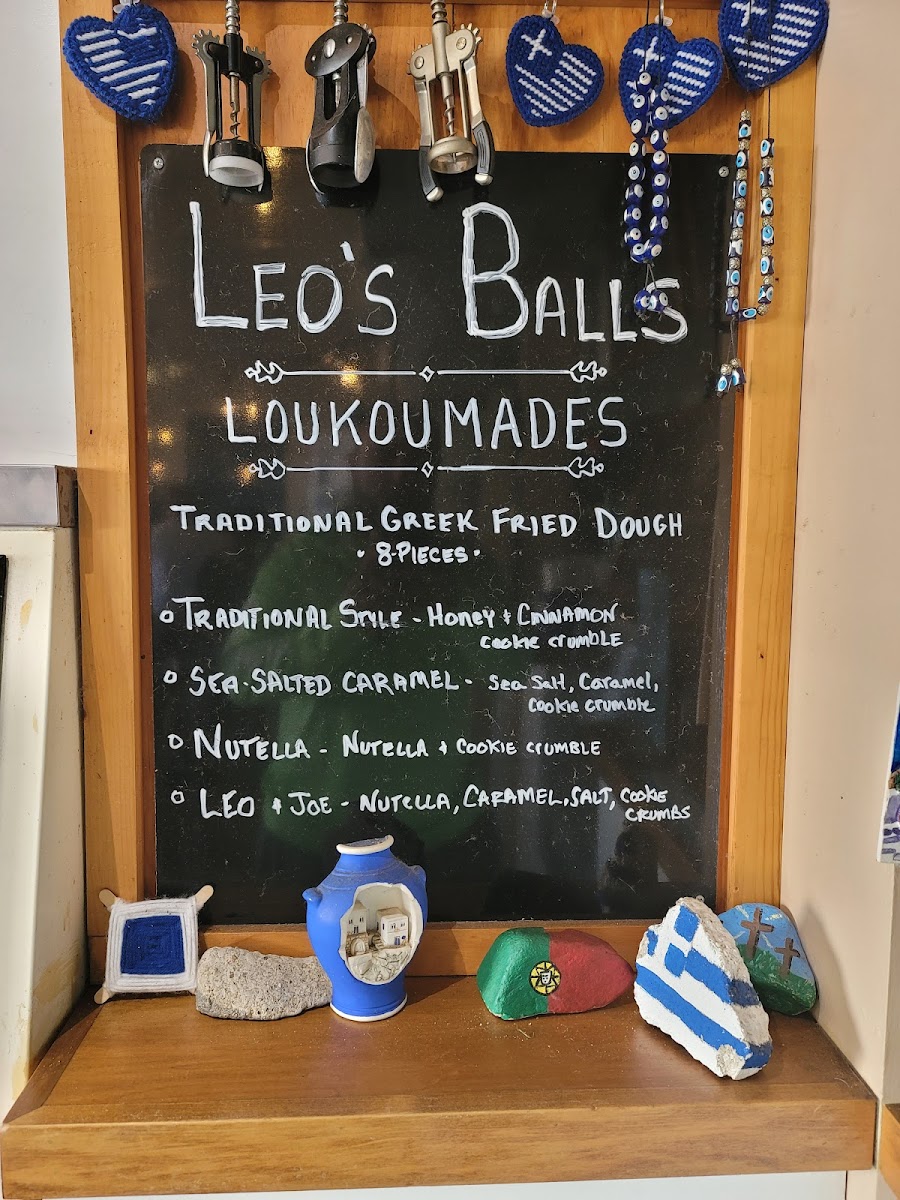 LEO'S BALLS
LOUKOUMADES
TRADITIONAL GREEK FRIED DOUGH
• 8-PIECES •
TRADITIONAL STYLE - HONEY + CINNAMON
COOKIE CRUMBLE
SEA-SALTED CARAMEL - Sea Salt, Caramel,
COOKIE CRUMBLE
NUTELLA - NUTELLA + COOKIE CRUMBLE
LEO + JOE - NUTELLA, CARAMEL, SALT, COOKIE
CRUMBS